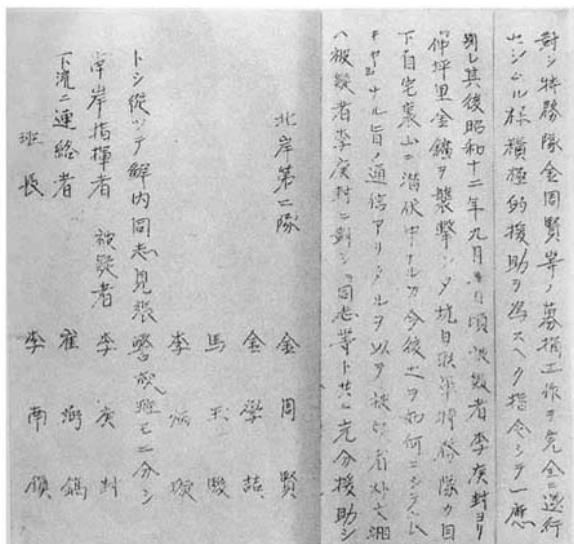 對シ特務隊金周賢等ノ募捐工作ヲ完全ニ遂行
セシムル樣積極的援助ヲ爲スヘク指令シテ一應
別レ其後昭和十二年九月 日頃被疑者李庚封ヨリ
仲坪里金鑛ヲ襲撃シタ抗日聯軍特務隊カ目
下自宅裏山ニ潜伏中ナルカ今後之ヲ如何ニ
ナル旨ノ通信アリタルヲ以テ被疑者朴文湘
ハ被疑者李庚封ニ對シ「同志等ト共ニ充分援助シ
北岸第二隊 金周賢
金學
馬玉駿
李炳璇
トシ從ツテ鮮内同志ノ見張警戒班モ二分シ
南岸指揮者 被疑者 李庚封
下流ニ連絡者 崔 鶴
班長 李南